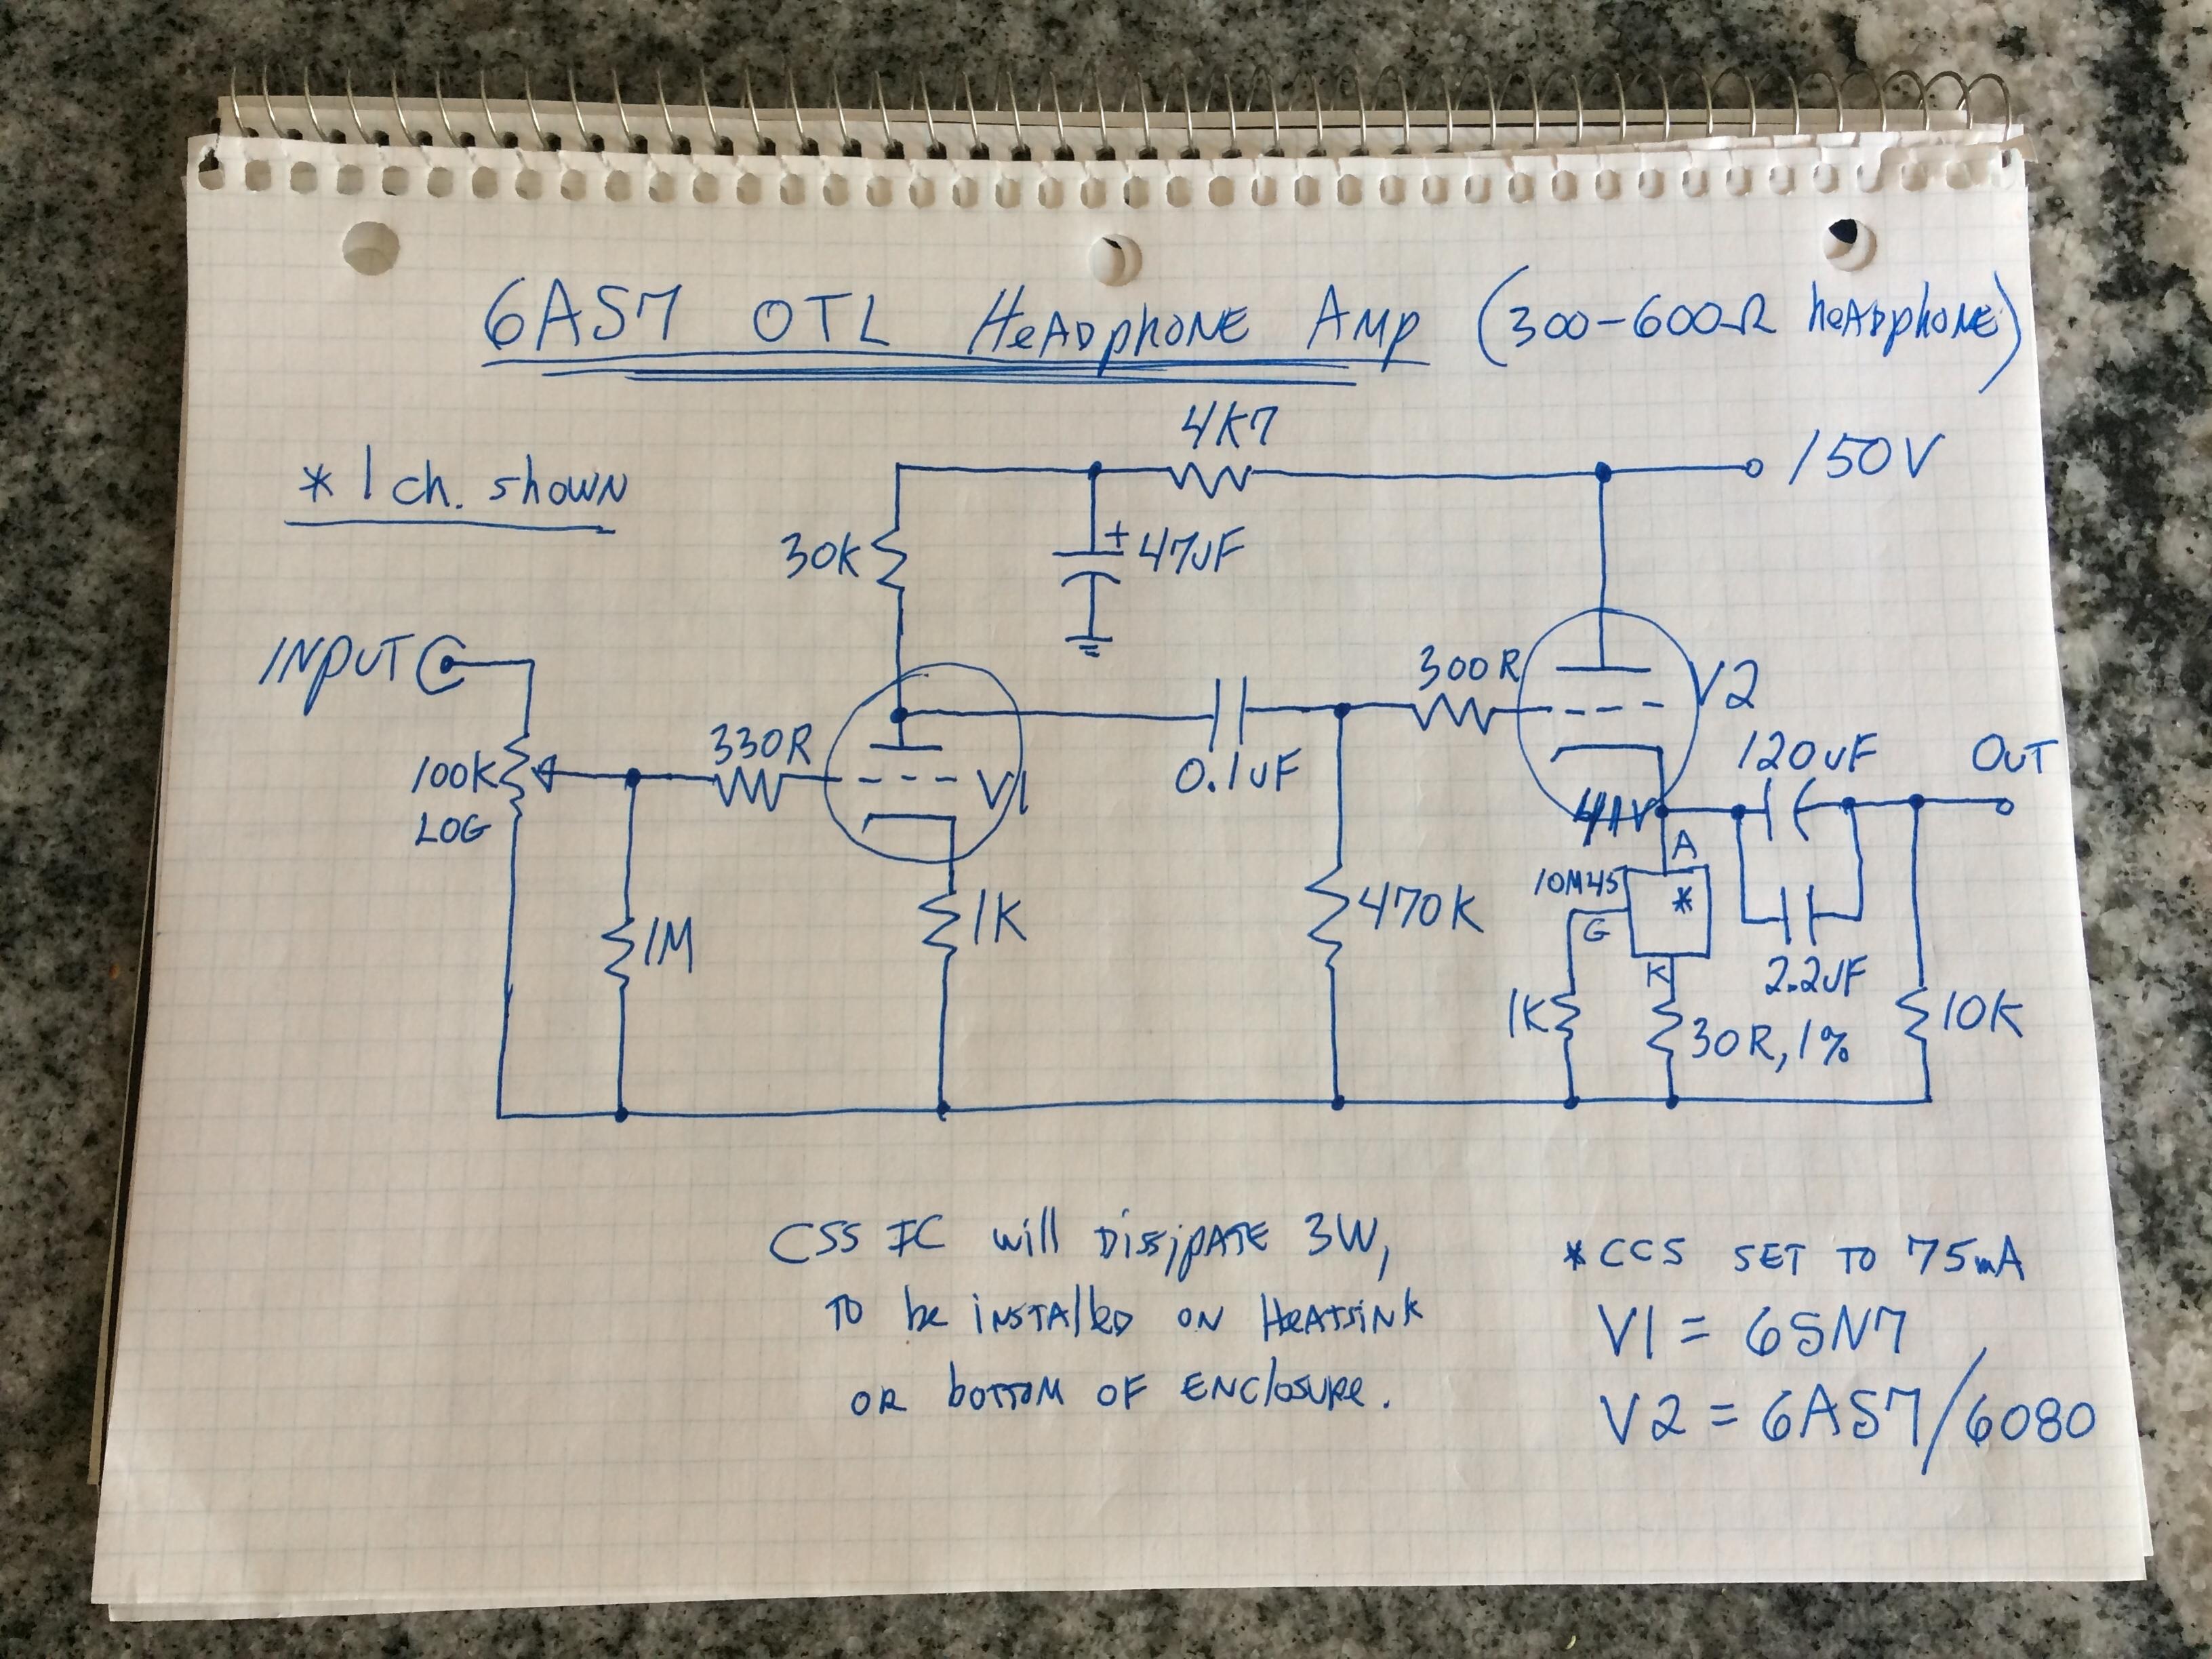 6AS7 OTL HeADphoNE Amp (300-600Ω heADphoNE)
* 1 ch. shown
4K7
150V
30K
+
47uF
INPUT
100K
LOG
330R
V1
1M
1K
0.1uF
470K
300R
V2
120uF
OUT
A
10M45
*
G
K
2.2uF
1K
30R, 1%
10K
CSS IC will DissipATE 3W,
TO be iNSTAlleD ON HeATsiNK
OR bOTTOM OF ENClosuRe.
*CCS SET TO 75mA
V1 = 6SN7
V2 = 6AS7/6080